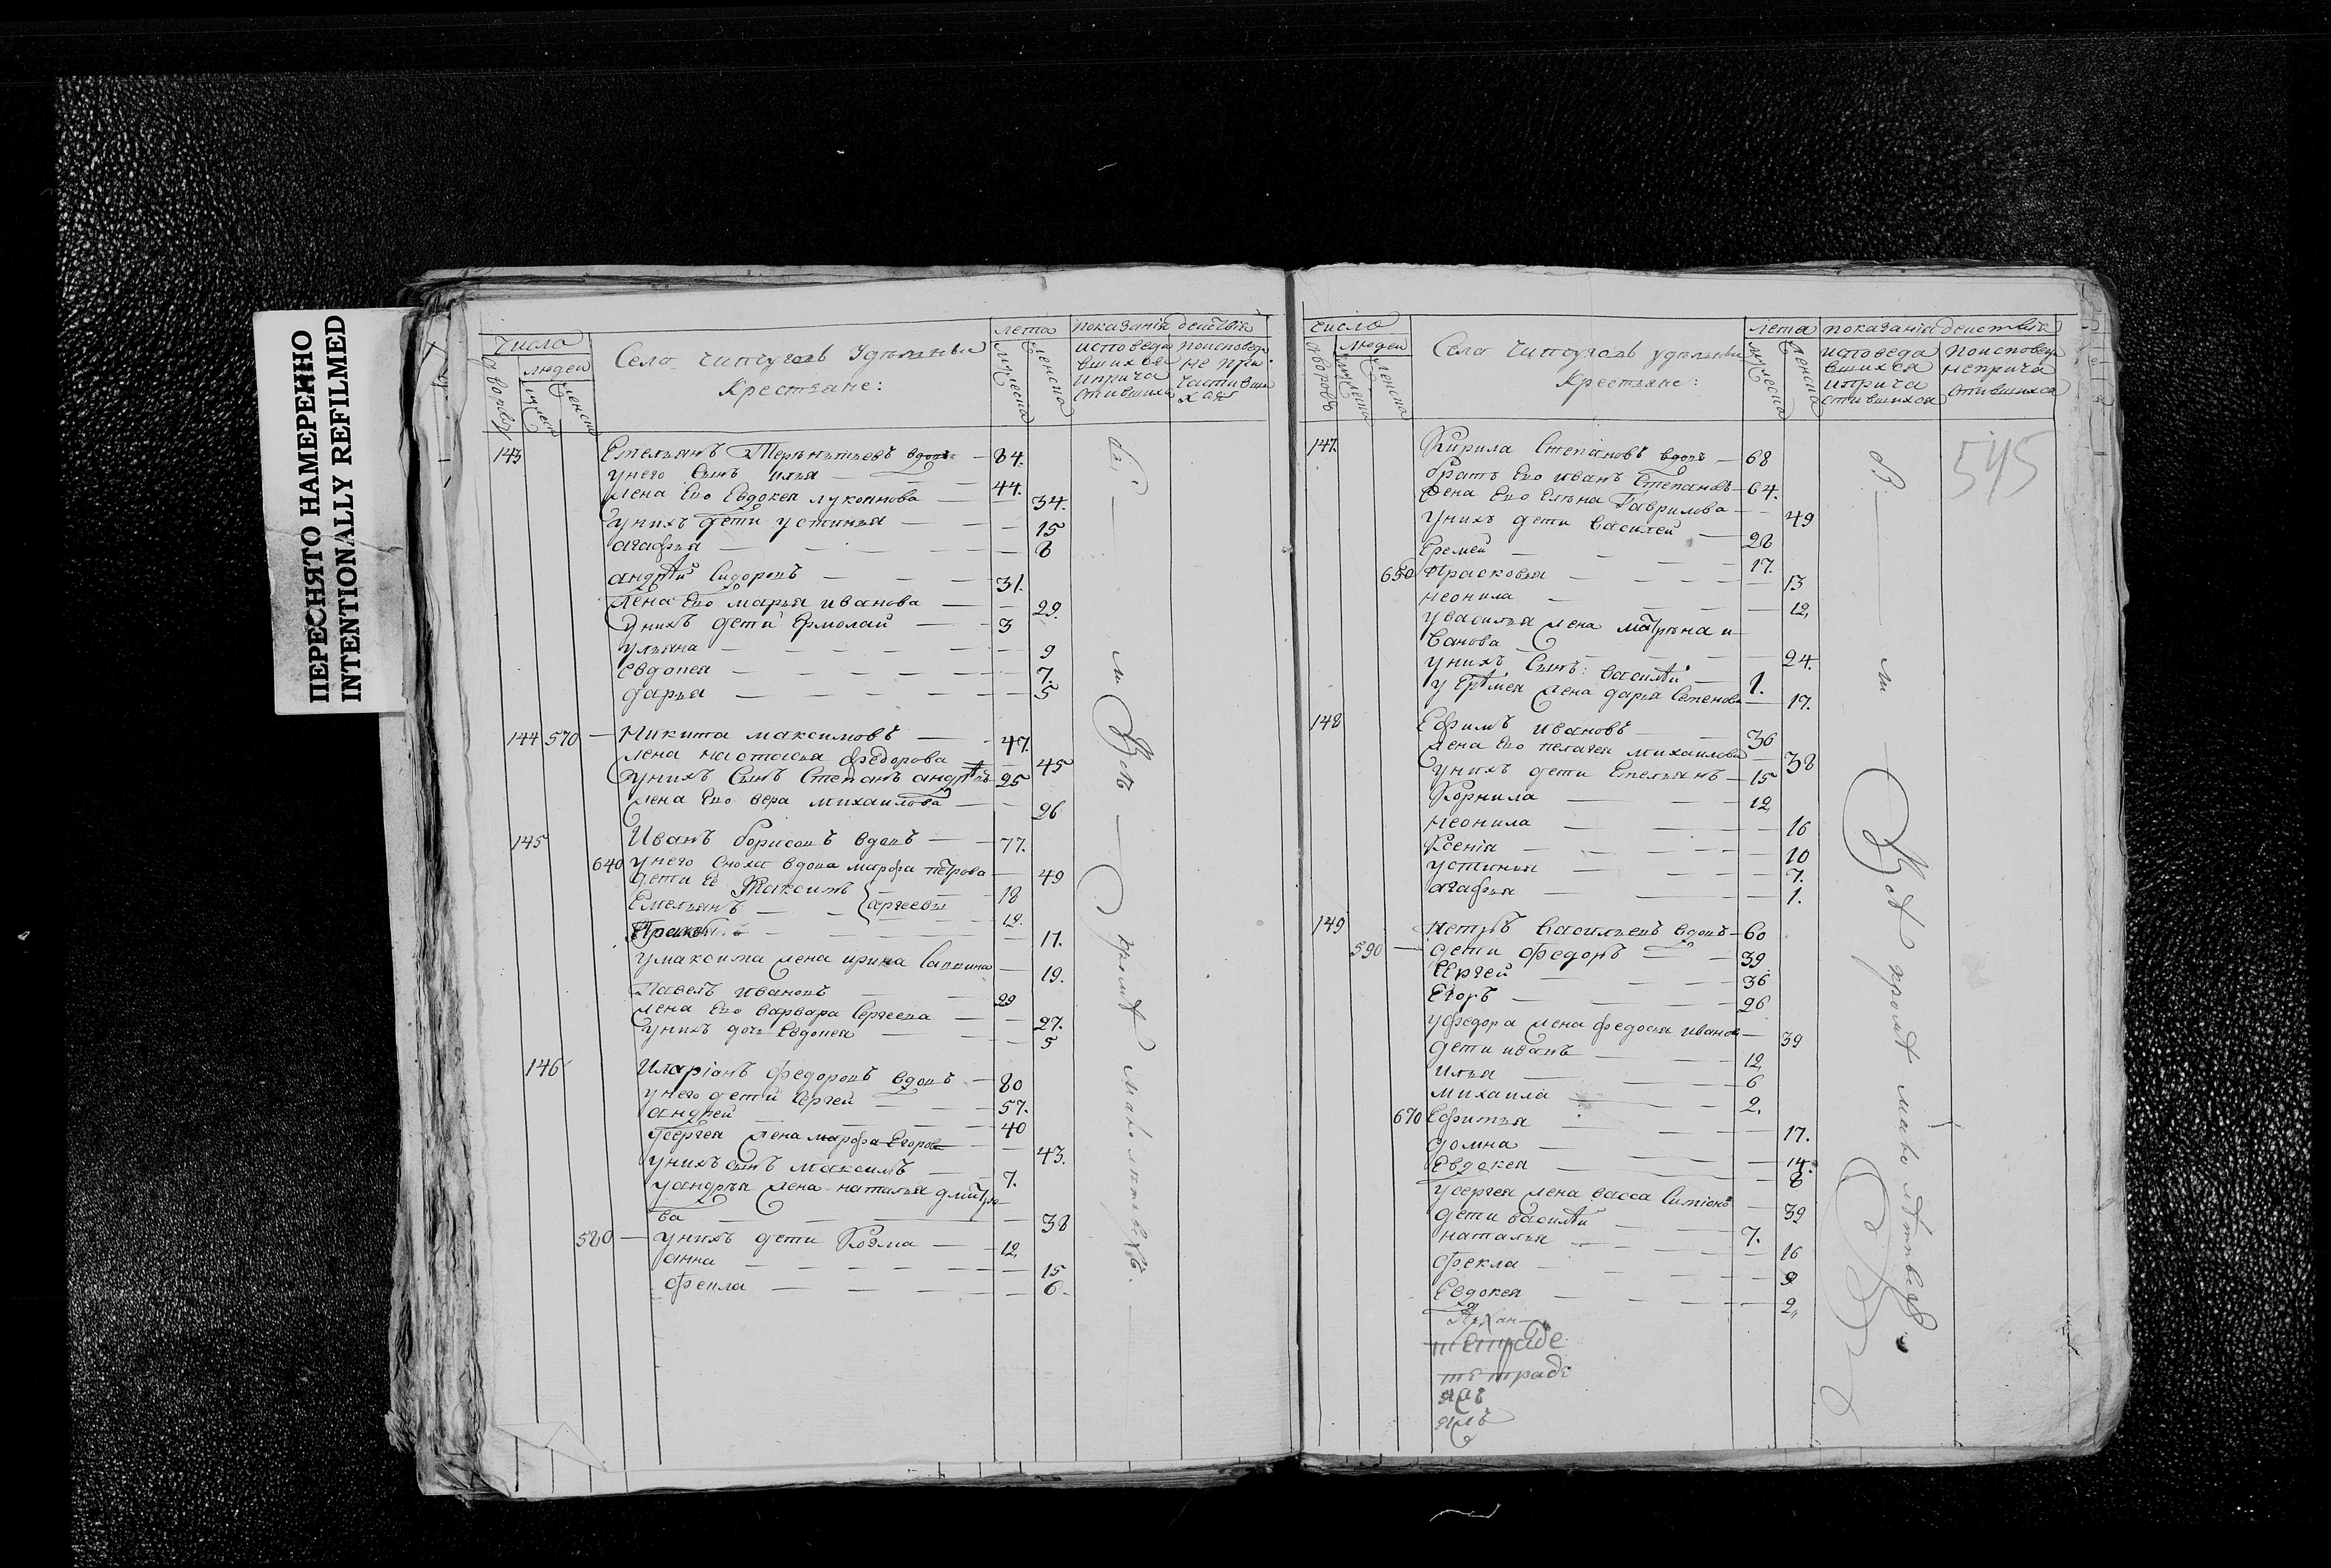 ПЕРЕСНЯТО НАМЕРЕННО
INTENTIONALLY REFILMED
числа
дворовъ
людей
мужеска
женска
Село Чипчуголь Удельныи
крестьяне:
лета
мужеска
женска
показанія действія
исповеда
вшихся
и прича
стившихся
по исповеди
не при
частивши
хся
143 Емельянъ Терентьевъ вдовъ — 84.
у него сынъ илья — 44.
жена ево Евдокея лукоянова — 34.
у нихъ дети устинья — 15
агафья — 8
андрѣй Сидоровъ — 31.
жена ево марья иванова — 29.
у нихъ дети Ермолаи — 3
ульяна — 9
Евдокея — 7.
дарья — 5
144 570 — Никита максимовъ — 47.
жена настасья федорова — 45
у нихъ сынъ Степанъ — 25
жена ево вера михаилова — 26
145 Иванъ борисовъ вдовъ — 77.
640 у него сноха вдова марфа петрова — 49
дети ее Максимъ — 18
Емельянъ — Сергеевы — 12.
— 17.
у максима жена ирина Саввина — 19.
Павелъ ивановъ — 29
жена ево варвара Сергеева — 27.
у нихъ дочь Евдокея — 5
146 Иларіонъ федоровъ вдовъ — 80
у него дети Сергей — 57.
андрей — 40
у Сергея жена марфа Егорова — 43.
у нихъ сынъ максимъ — 7.
у андрея жена наталья дмитрие
ва — 38
580 — у нихъ дети Козма — 12,
анна — 15
фекла — 6.
Всѣ кромѣ малолетныхъ.
число
дворовъ
людей
мужеска
женска
Село Чипчуголь удельныи
крестьяне:
лета
мужеска
женска
показанія действія
исповеда
вшихся
и прича
стившихся
по исповеди
не прича
стившихся
545
147. Кирила Степановъ вдовъ — 68
братъ ево иванъ Степановъ — 64.
жена ево Елена Гаврилова — 49
у нихъ дети василей — 28
Еремей — 17.
650 Прасковья — 13
неонила — 12,
у василья жена матрена и
ванова — 24.
у нихъ сынъ: василѣй — 1.
у Еремея жена дарья Семенова — 17.
148 Ефимъ ивановъ — 36
жена ево пелагея михаилова — 38
у нихъ дети Емельянъ — 15
Корнила — 12,
неонила — 16
Ксенія — 10
устинья — 7.
агафья — 1.
149 Петръ васильевъ вдовъ — 60
590 — дети федоръ — 39
Сергей — 36
Егоръ — 26
у федора жена федосья иванов — 39
дети иванъ — 12,
илья — 6
михаила — 2.
670 Ефимья — 17.
домна — 14.
Евдокея — 8
у сергея жена васса Симіонъ — 39
дети василѣй — 7.
наталья — 16
фекла — 9
Евдокея — 2,
тетраде
тетраде
Всѣ кромѣ малолѣтныхъ